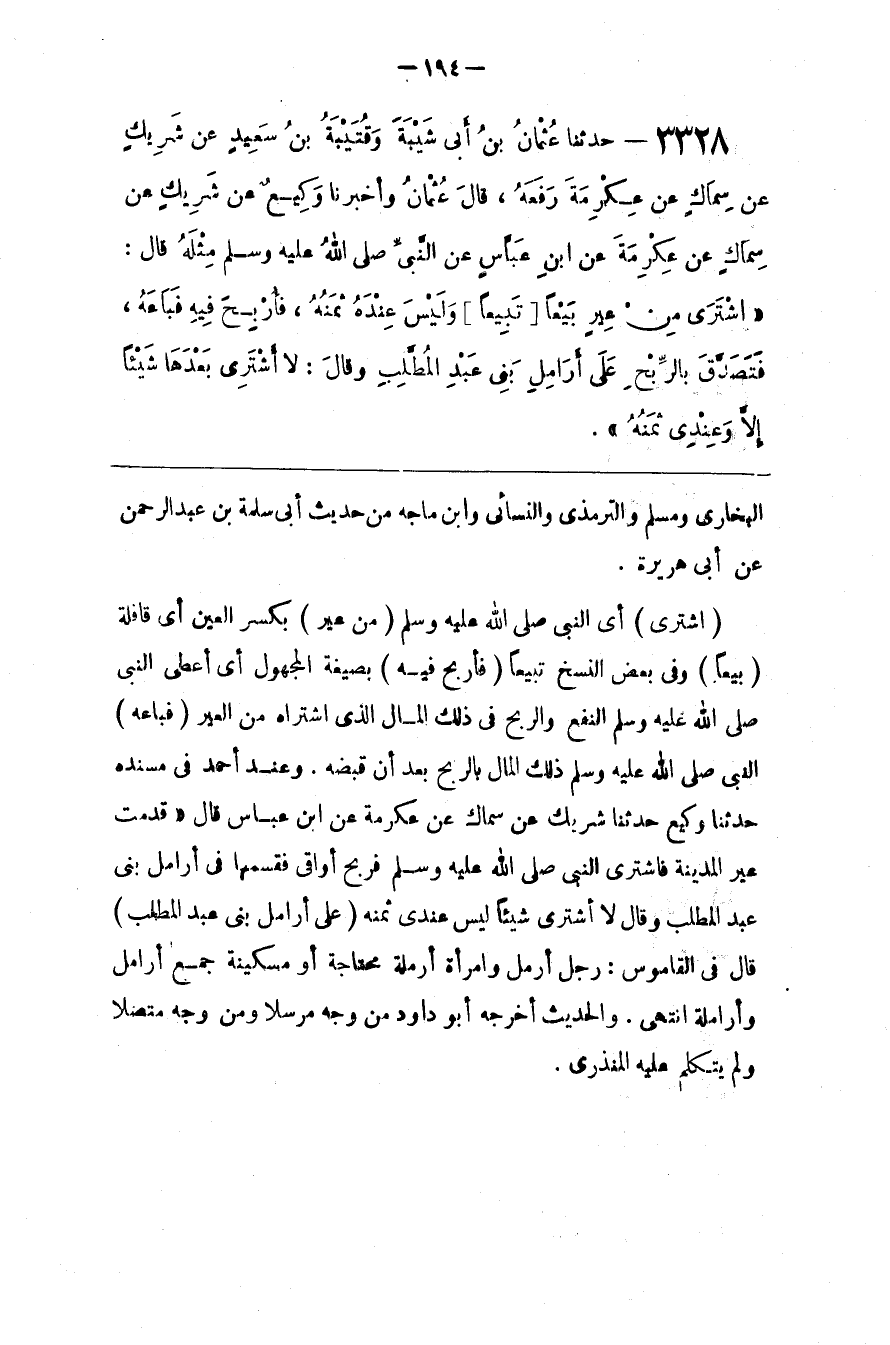 — ١٩٤ —
٣٣٢٨ — حدثنا عُثْمانُ بنُ أَبى شَيْبَةَ وَقُتَيْبَةُ بنُ سَعِيدٍ عن شَرِيكٍ
عن سِماكٍ عن عِكْرِمَةَ رَفَعَهُ ، قالَ عُثْمانُ وأخبرنا وَكِيعٌ عن شَرِيكٍ عن
سِماكٍ عن عِكْرِمَةَ عن ابنِ عَبَّاسٍ عن النَّبىِّ صلى اللهُ عليه وسلم مِثْلَهُ قال :
« اشْتَرَى مِنْ عِيرٍ بَيْعاً [ تَبِيعاً ] وَلَيْسَ عِنْدَهُ ثَمَنُهُ ، فَأُرْبِحَ فِيهِ فَبَاعَهُ ،
فَتَصَدَّقَ بالرِّبْحِ عَلَى أَرَامِلِ بَنِى عَبْدِ المُطَّلِبِ وقالَ : لا أَشْتَرِى بَعْدَهَا شَيْئاً
إِلاَّ وَعِنْدِى ثَمَنُهُ » .
البخارى ومسلم والترمذى والنسائى وابن ماجه من حديث أبى سلمة بن عبدالرحمن
عن أبى هريرة .
( اشترى ) أى النبى صلى الله عليه وسلم ( من عير ) بكسر العين أى قافلة
( بيعاً ) وفى بعض النسخ تبيعاً ( فأربح فيه ) بصيغة المجهول أى أعطى النبى
صلى الله عليه وسلم النفع والربح فى ذلك المال الذى اشتراه من العير ( فباعه )
النبى صلى الله عليه وسلم ذلك المال بالربح بعد أن قبضه . وعند أحمد فى مسنده
حدثنا وكيع حدثنا شريك عن سماك عن عكرمة عن ابن عباس قال « قدمت
عير المدينة فاشترى النبى صلى الله عليه وسلم فربح أواقى فقسمها فى أرامل بنى
عبد المطلب وقال لا أشترى شيئاً ليس عندى ثمنه ( على أرامل بنى عبد المطلب )
قال فى القاموس : رجل أرمل وامرأة أرملة محتاجة أو مسكينة جمع أرامل
وأراملة انتهى . والحديث أخرجه أبو داود من وجه مرسلا ومن وجه متصلا
ولم يتكلم عليه المنذرى .